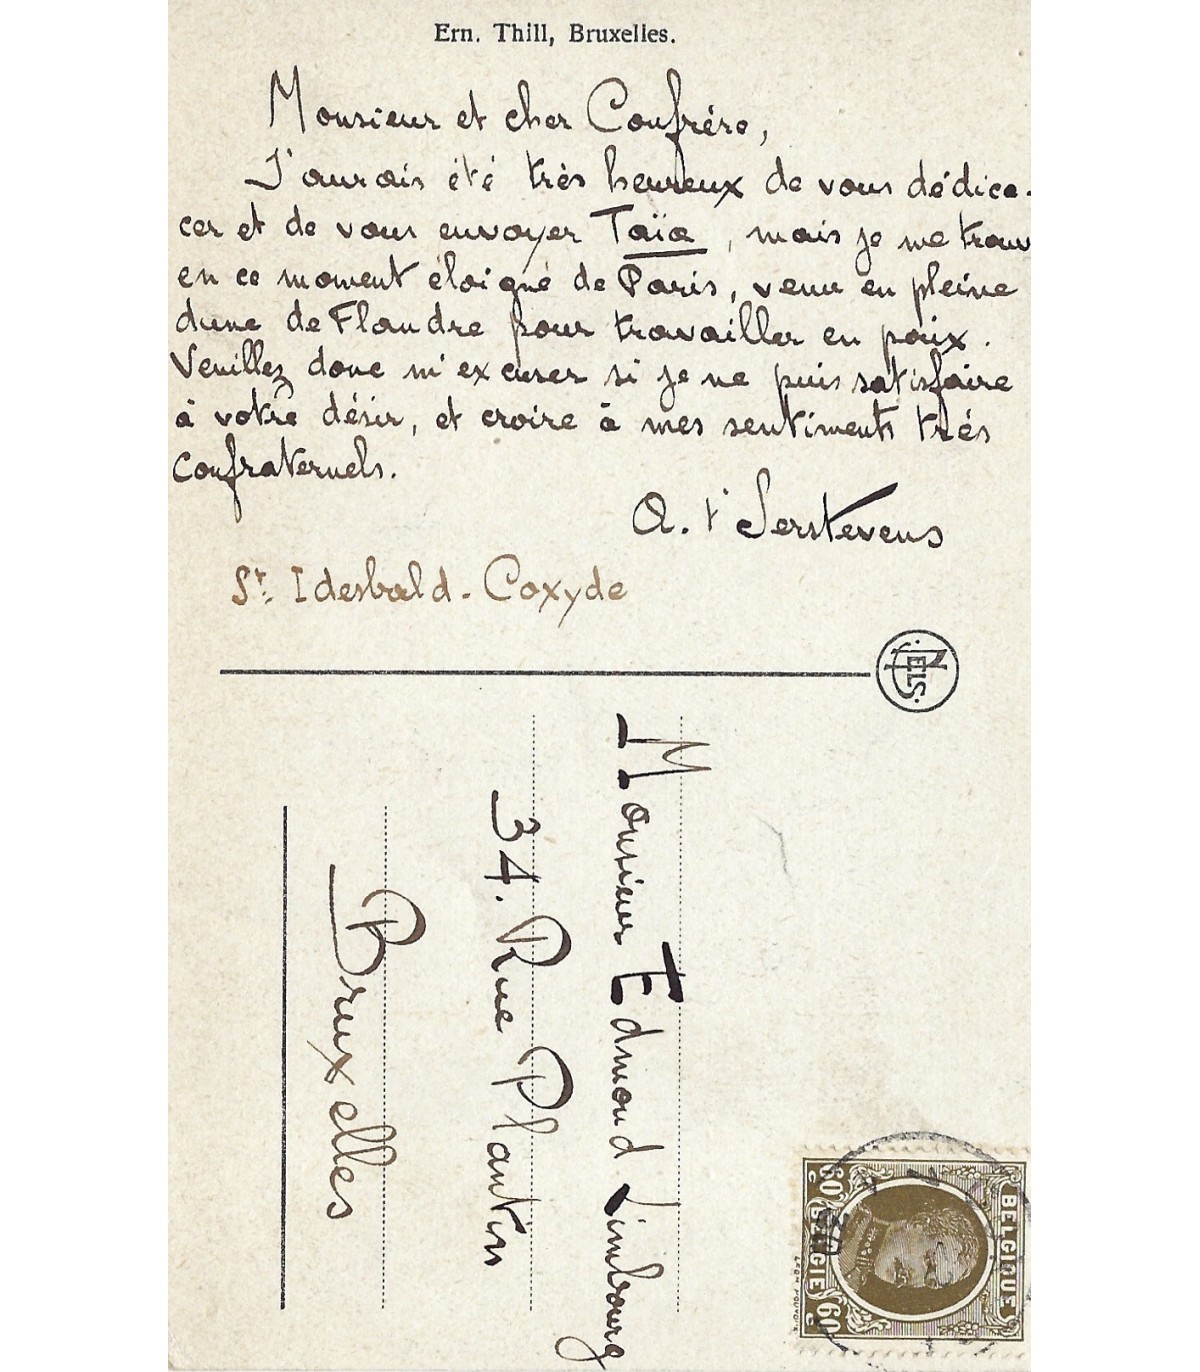 Ern. Thill, Bruxelles.
Monsieur et cher Confrère,
J'aurais été très heureux de vous dédica-
cer et de vous envoyer Taïa, mais je me trouv
en ce moment éloigné de Paris, venu en pleine
dune de Flandre pour travailler en paix.
Veuillez donc m'excuser si je ne puis satisfaire
à votre désir, et croire à mes sentiments très
confraternels.
A. t'Serstevens
St. Idesbald - Coxyde
NELS
Monsieur Edmond Limbourg
34. Rue Plantin
Bruxelles
BELGIQUE
60 c
BELGIE 60 c